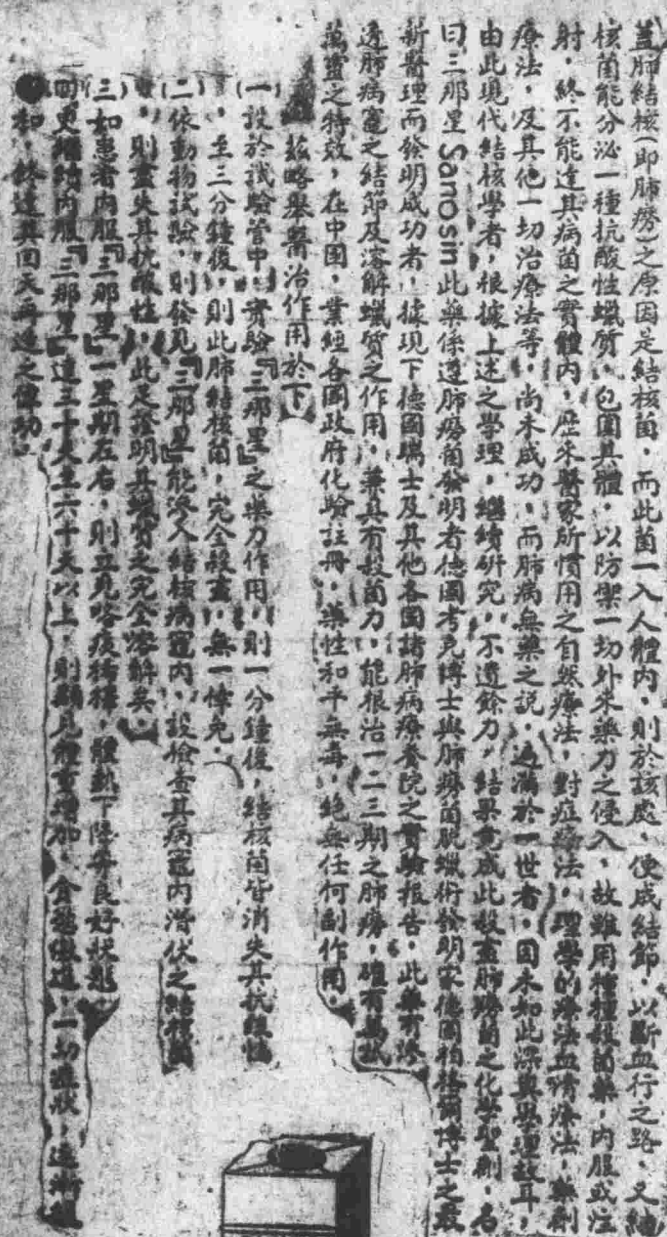 蓋肺結核(即肺癆)之原因是結核菌，而此菌一入人體內，則於該處，便成結節，以斷血行之路，又結
核菌能分泌一種抗酸性蠟質，包圍其體，以防禦一切外來藥力之侵入，故雖用種種殺菌藥，內服或注
射，終不能達其病菌之實體內，歷來醫家所慣用之自然療法，對症療法，理學的療法血清療法，藥劑
療法，及其他一切治療法等，尚未成功，而肺病無藥之說，遍滿於一世者，因未知此深奧學理故耳，
由此現代結核學者，根據上述之學理，繼續研究，不遺餘力，結果竟成此殺盡肺癆菌之化學聖劑，名
曰三那星Sanosin此藥係遵肺癆菌發明者德國考克博士與肺癆菌脫蠟術發明家德國柏格爾博士之最
新醫理而發明成功者，據現下德國瑞士及其他各國諸肺病療養院之實驗報告，此藥有滲
透肺病竈之結節及溶解蠟質之作用，兼具有殺菌力，能根治一二三期之肺癆，確有
萬靈之特效，在中國，業經各國政府化驗註冊，藥性和平無毒，絕無任何副作用，
茲略舉醫治作用於下，
(一)設於試驗管中，實驗『三那星』之藥力作用，則一分鐘後，結核菌皆消失其抗
，至三分鐘後，則此肺結核菌，完全殺盡，無一倖免，
(二)依動物試驗，則發見『三那星』能滲入結核病竈內，設檢查其病竈內潛伏之結核菌
，則盡失其抗酸性，此足證明其蠟質之完全溶解矣，
(三)如患者內服『三那星』一星期左右，則立見咯痰稀薄，體熱下降等良好狀態
(四)更繼續內服『三那星』達三十天至六十天以上，則顯見體重增加，食慾，一切症狀，逐漸
和，終達其回天再造之偉功，